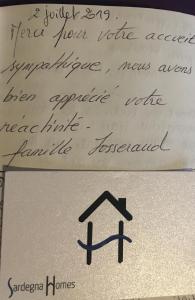 2 juillet 2019.
Merci pour votre accueil
sympathique, nous avons
bien apprécié votre
réactivité.
famille Josseraud
Sardegna Homes